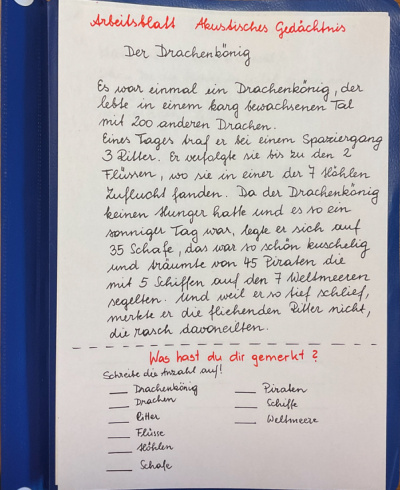 Arbeitsblatt Akustisches Gedächtnis
Der Drachenkönig
Es war einmal ein Drachenkönig, der
lebte in einem karg bewachsenen Tal
mit 200 anderen Drachen.
Eines Tages traf er bei einem Spaziergang
3 Ritter. Er verfolgte sie bis zu den 2
Flüssen, wo sie in einer der 7 Höhlen
Zuflucht fanden. Da der Drachenkönig
keinen Hunger hatte und es so ein
sonniger Tag war, legte er sich auf
35 Schafe, das war so schön kuschelig
und träumte von 45 Piraten die
mit 5 Schiffen auf den 7 Weltmeeren
segelten. Und weil er so tief schlief,
merkte er die fliehenden Ritter nicht,
die rasch davoneilten.
Was hast du dir gemerkt?
Schreibe die Anzahl auf!
___ Drachenkönig
___ Drachen
___ Ritter
___ Flüsse
___ Höhlen
___ Schafe
___ Piraten
___ Schiffe
___ Weltmeere